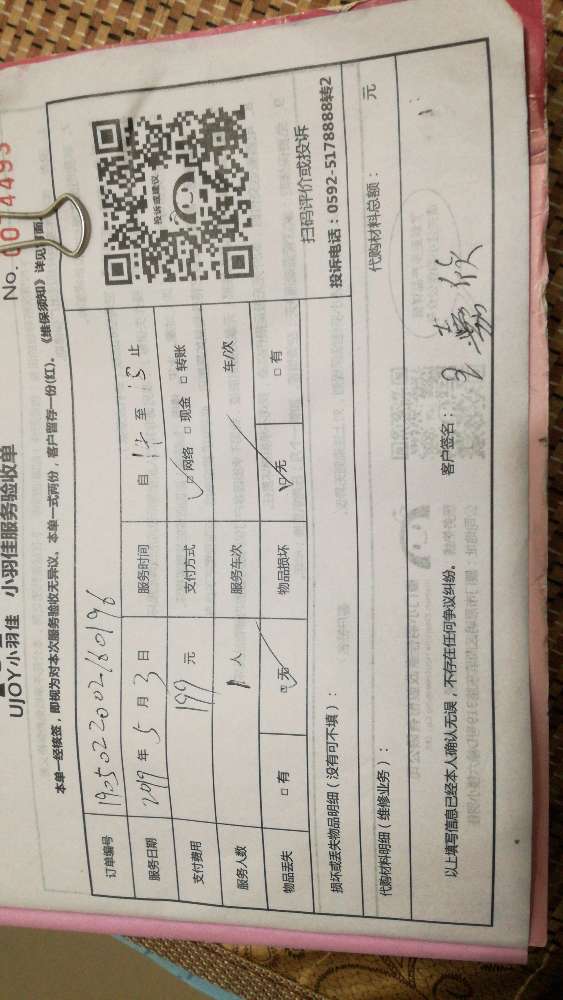 No. 0074493
UJOY小羽佳 小羽佳服务验收单
本单一经核签，即视为对本次服务验收无异议。本单一式两份，客户留存一份(红)。《维保须知》详见
订单编号 1905022002160196
服务日期 2019 年 5 月 3 日 服务时间 自 14 至 15 止
支付费用 199 元 支付方式 □网络 □现金 □转账
服务人数 1 人 服务车次 车/次
物品丢失 □有 □无 物品损坏 □无 □有
投诉或建议
扫码评价或投诉
投诉电话：0592-5178888转2
损坏或丢失物品明细（没有可不填）：
代购材料明细（维修业务）： 代购材料总额： 元
以上填写信息已经本人确认无误，不存在任何争议纠纷。 客户签名：